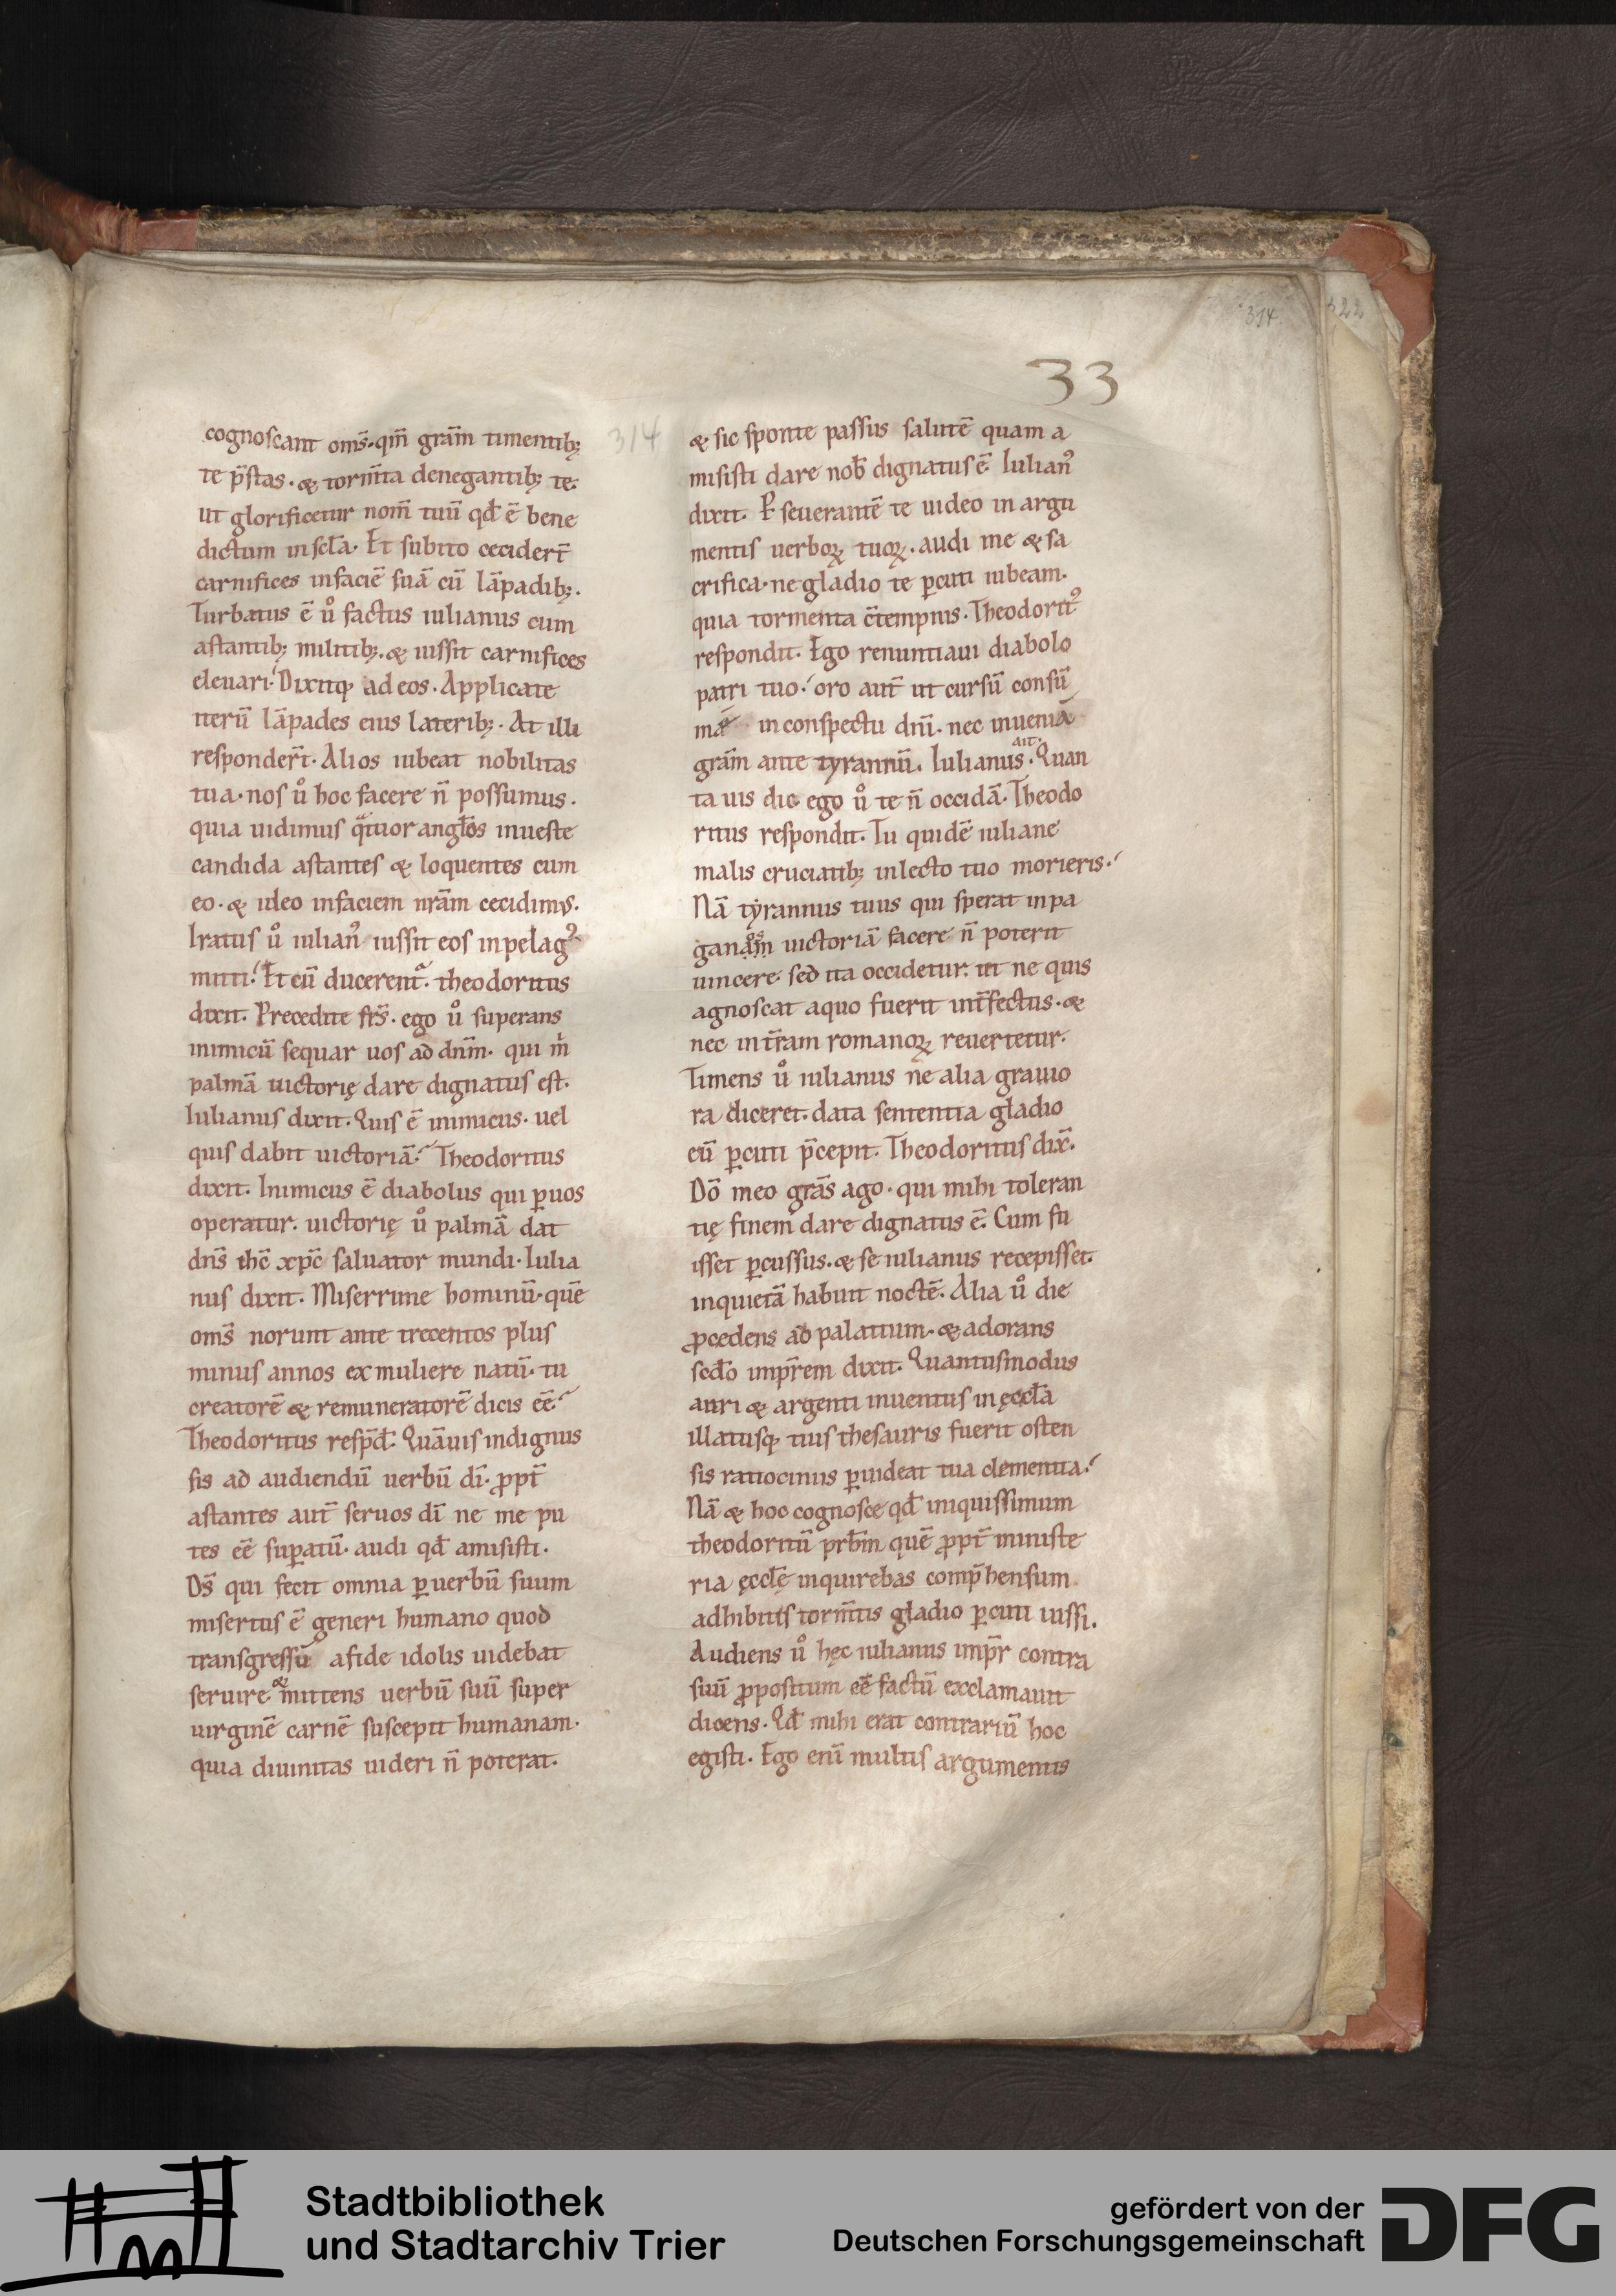 314
322
33
314
cognoscant om̄s·qm̄ grām timentib;
te p̄stas·& torm̄ta denegantib; te.
ut glorificetur nom̄ tuū qđ ē bene
dictum in scła. Et subito cecider̄t
carnifices infaciē suā cū lāpadib;.
Turbatus ē ů factus iulianus cum
astantib; militib;.& iussit carnifices
eleuari. Dixitq; ad eos. Applicate
iterū lāpades eius laterib;. At illi
responder̄t. Alios iubeat nobilitas
tua·nos ů hoc facere n̄ possumus.
quia uidimus qͣtuor angłos inueste
candida astantes & loquentes cum
eo·& ideo infaciem nrām cecidimus.
Iratus ů iulian⁹ iussit eos inpelag⁹
mitti. Et cū ducerent᷑. theodoritus
dixit. Precedite frs̄. ego ů superans
inimicū sequar uos ad dnm̄. qui m̍
palmā uictorię dare dignatus est.
Iulianus dixit. Quis ē inimicus. uel
quis dabit uictoriā? Theodoritus
dixit. Inimicus ē diabolus qui ꝑuos
operatur. uictorię ů palmā dat
dn̄s ihc̄ xpc̄ saluator mundi. Iulia
nus dixit. Miserrime hominū·quē
om̄s norunt ante trecentos plus
minus annos ex muliere natū. tu
creatorē & remuneratorē dicis eē?
Theodoritus resp̄đ. Quāuis indignus
sis ad audiendū uerbū dī. ꝓpt̄
astantes aut̄ seruos dī ne me pu
tes eē suꝑatū. audi qđ amisisti.
Dś qui fecit omnia ꝑuerbū suum
misertus ē generi humano quod
transgressū afide idolis uidebat
seruire & mittens uerbū suū super
uirginē carnē suscepit humanam.
quia diuinitas uideri n̄ poterat.
& sic sponte passus salutē quam a
misisti dare nob̄ dignatus ē. Iulian⁹
dixit. Pseuerantē te uideo in argu
mentis uerboꝝ tuoꝝ. audi me & sa
crifica·ne gladio te ꝑcuti iubeam.
quia tormenta c̄tempnis. Theodorit⁹
respondit. Ego renuntiaui diabolo
patri tuo. oro aut̄ ut cursū consū
mē in conspectu dnī. nec inueniā
grām ante tyrannū. Iulianus ait. Quan
ta uis dic ego ů te n̄ occidā. Theodo
ritus respondit. Tu quidē iuliane
malis cruciatib; inlecto tuo morieris.
Nā tyrannus tuus qui sperat inpa
ganos uictoriā facere n̄ poterit
uincere. sed ita occidetur. ut ne quis
agnoscat aquo fuerit int̄fectus·&
nec int̄ram romanoꝝ reuertetur.
Timens ů iulianus ne alia grauio
ra diceret. data sententia gladio
eū ꝑcuti p̄cepit. Theodoritus dix̄.
Dō meo grās ago. qui mihi toleran
tię finem dare dignatus ē. Cum fu
isset ꝑcussus.& se iulianus recepisset.
inquietā habuit noctē. Alia ů die
ꝓcedens ad palatium.& adorans
scđo imp̄rem dixit. Quantusmodus
auri & argenti inuentus in ęccła
illatusq; tuis thesauris fuerit osten
sis ratiociniis ꝑuideat tua clementia.
Nā & hoc cognosce qđ iniquissimum
theodoritū prb̄m quē ꝓpt̄ ministe
ria ęccłę inquirebas comp̄hensum
adhibitis torm̄tis gladio ꝑcuti iussi.
Audiens ů hęc iulianus imp̄r contra
suū ꝓpositum eē factū exclamauit
dicens. Qđ mihi erat contrariū hoc
egisti. Ego enī multis argumentis
Stadtbibliothek
und Stadtarchiv Trier
gefördert von der
Deutschen Forschungsgemeinschaft
DFG